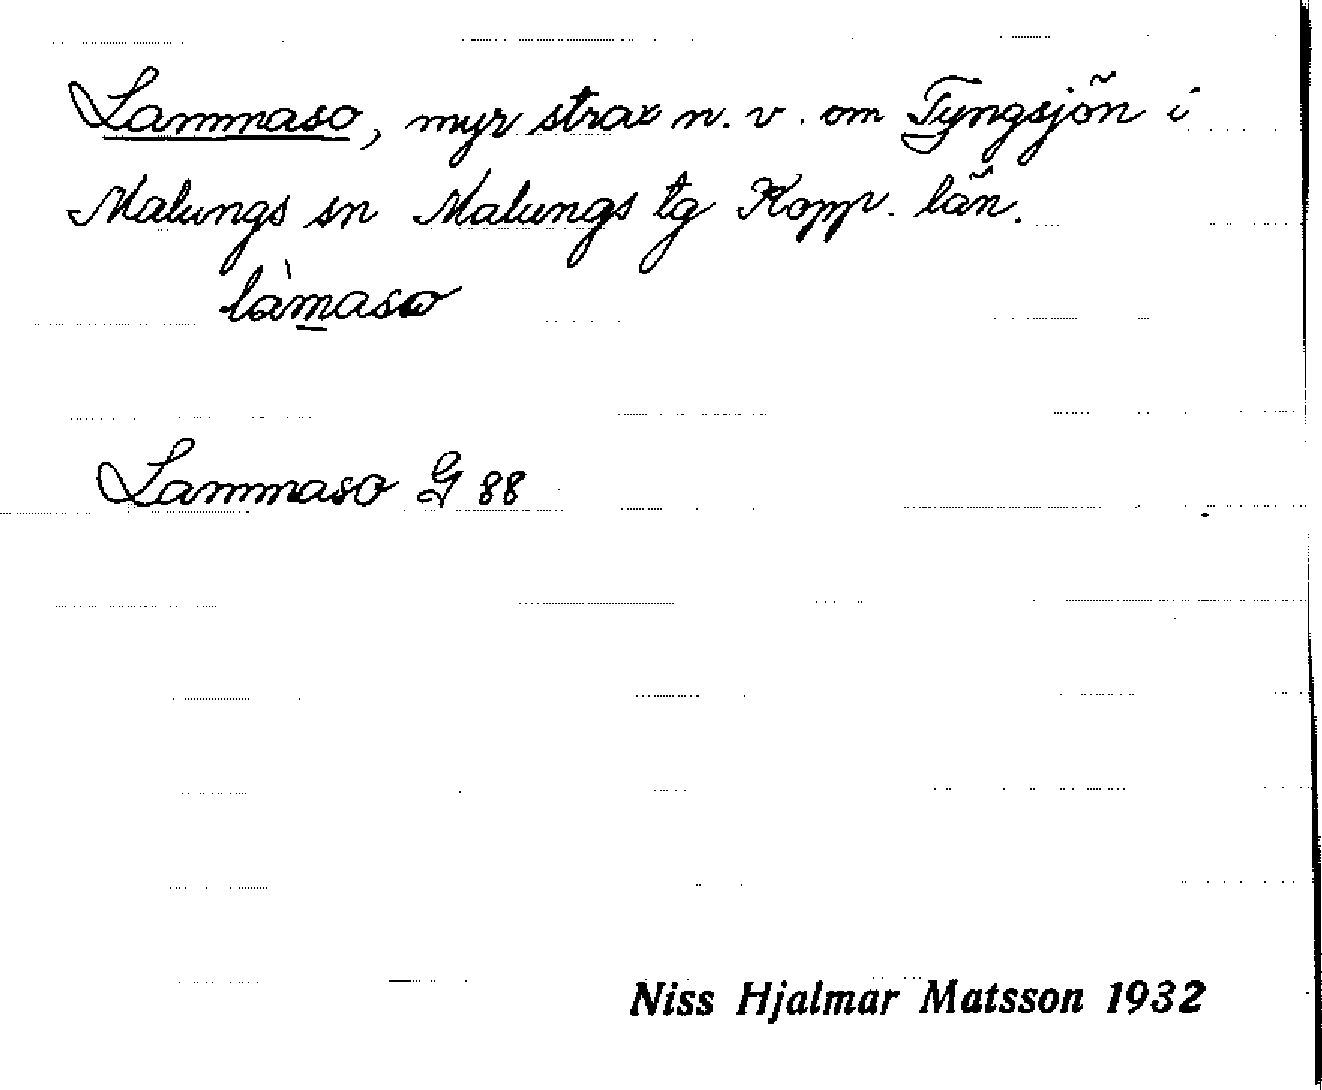 Lammaso, myr strax n. v. om Tyngsjön i
Malungs sn Malungs tg Kopp. län.
làmaso
Lammaso G 88
Niss Hjalmar Matsson 1932